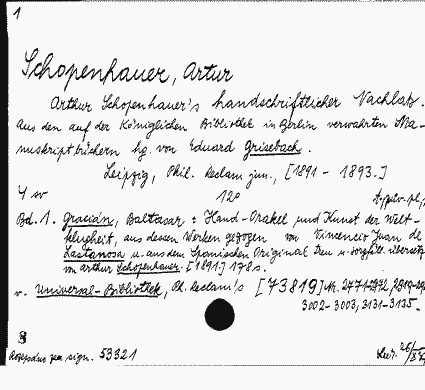 1
Schopenhauer, Artur
Arthur Schopenhauer's handschriftlicher Nachlaß.
Aus den auf der Königlichen Bibliothek in Berlin verwahrten Ma-
nuskriptbüchern hg. von Eduard Grisebach.
Leipzig, Phil. Reclam jun., [1891 - 1893.]
4 sv 12°
Bd. 1. Gracián, Baltasar: Hand-Orakel und Kunst der Welt-
klugheit, aus dessen Werken gezogen von Vincencio Juan de
Lastanosa u. aus dem Spanischen Original treu u. sorgfält. übersetzt
von Arthur Schopenhauer. [1891] 178 s.
v. Universal-Bibliothek, Ph. Reclam's [73819] Nr. 2771-2772,
3002-3003, 3131-3135.
53321